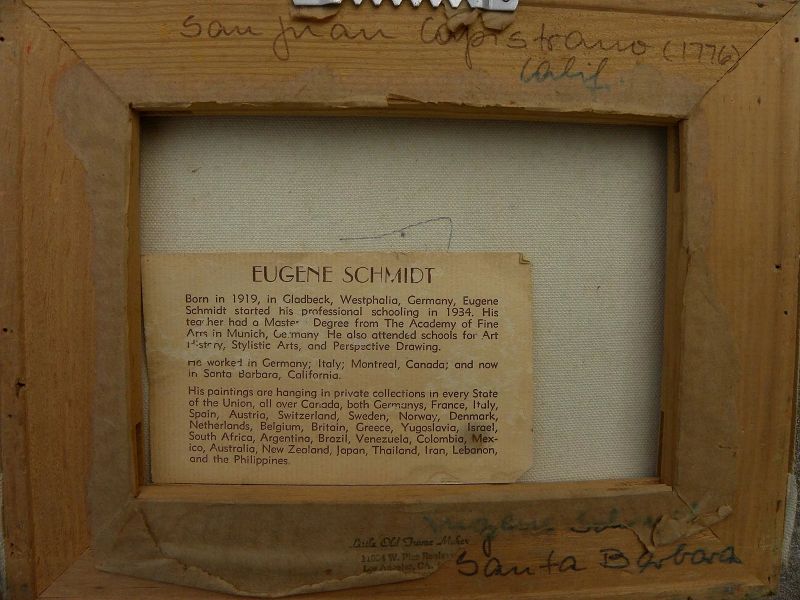 San Juan Capistrano (1776)
Calif.
EUGENE SCHMIDT
Born in 1919, in Gladbeck, Westphalia, Germany, Eugene
Schmidt started his professional schooling in 1934. His
teacher had a Master Degree from The Academy of Fine
Arts in Munich, Germany. He also attended schools for Art
History, Stylistic Arts, and Perspective Drawing.
He worked in Germany; Italy; Montreal, Canada; and now
in Santa Barbara, California.
His paintings are hanging in private collections in every State
of the Union, all over Canada, both Germanys, France, Italy,
Spain, Austria, Switzerland, Sweden, Norway, Denmark,
Netherlands, Belgium, Britain, Greece, Yugoslavia, Israel,
South Africa, Argentina, Brazil, Venezuela, Colombia, Mex-
ico, Australia, New Zealand, Japan, Thailand, Iran, Lebanon,
and the Philippines.
Little Old Frame Maker
W. Pico
Los Angeles, CA.
Santa Barbara